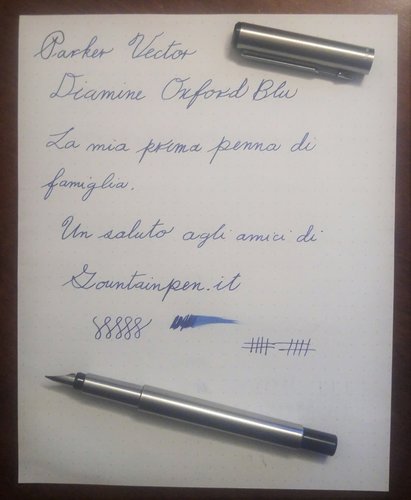 Parker Vector
Diamine Oxford Blu
La mia prima penna di
famiglia.
Un saluto agli amici di
Fountainpen.it